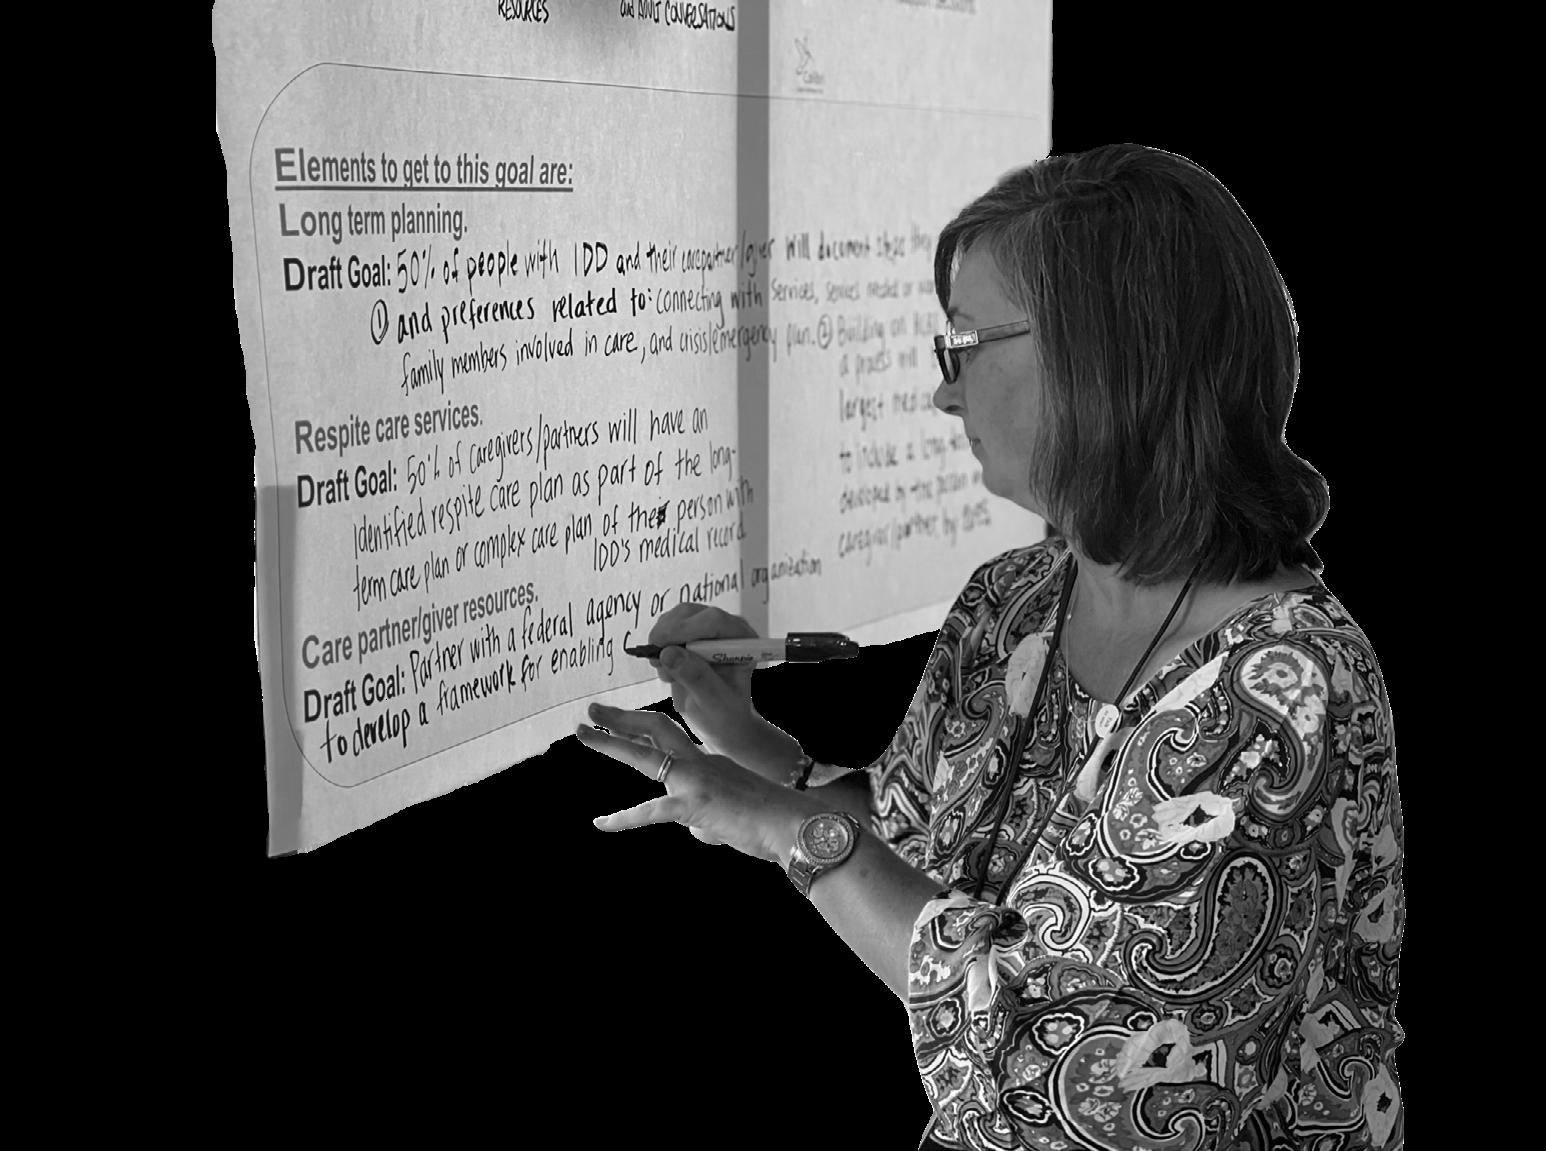 RESOURCES
and ADULT CONVERSATIONS
Elements to get to this goal are:
Long term planning.
Draft Goal: 50% of people with IDD and their carepartner/giver will document steps they
① and preferences related to: connecting with services, services needed or
family members involved in care, and crisis/emergency plan. ② Building on
a process will
largest
to include a long-
developed by the person
caregiver/partner by
Respite care services.
Draft Goal: 50% of caregivers/partners will have an
identified respite care plan as part of the long-
term care plan or complex care plan of their person with
IDD's medical record
Care partner/giver resources.
Draft Goal: Partner with a federal agency or national organization
to develop a framework for enabling
Sharpie